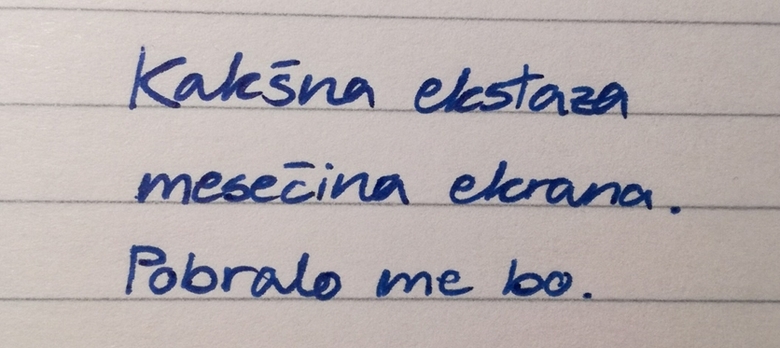 Kakšna ekstaza
mesečina ekrana.
Pobralo me bo.